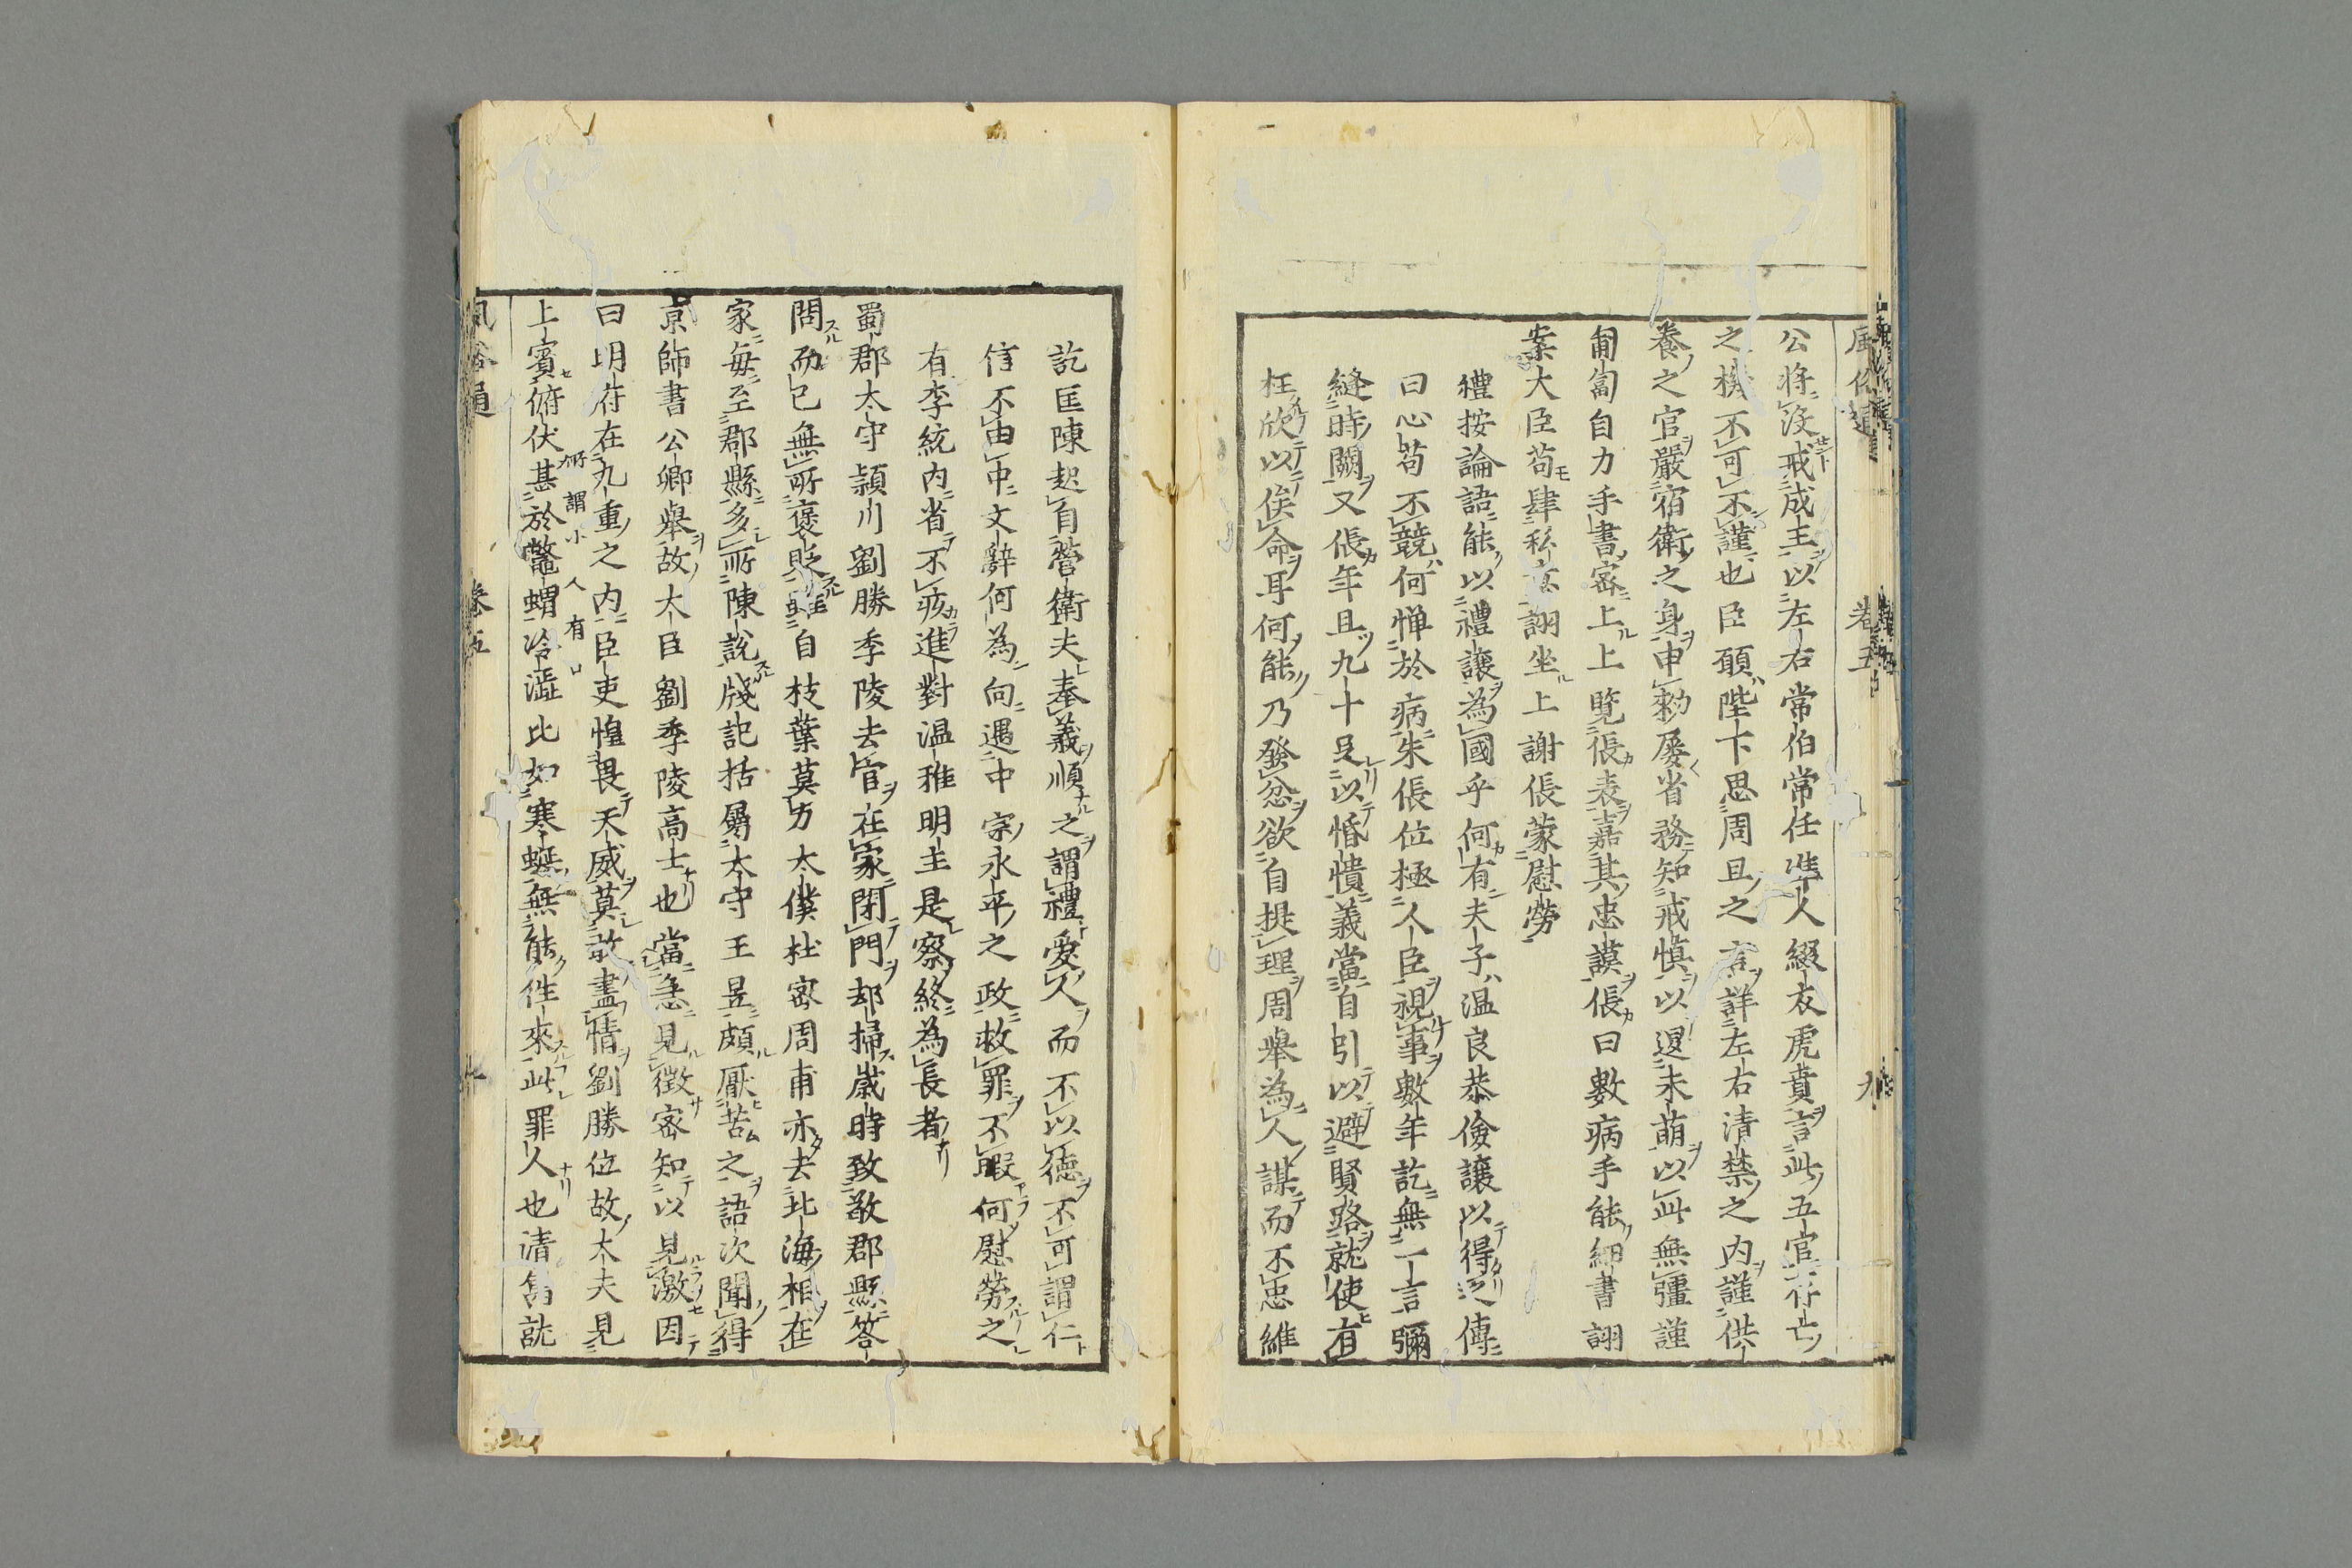 風俗通 卷五 九
公將沒戒成王以左右常伯常任準人綴衣虎賁言此五官存亡
之機不可不謹也臣願陛下思周旦之言詳左右清禁之內謹供
養之官嚴宿衛之身申勅屡省務知戒慎以退未萌以此無彊謹
匍匐自力手書密上上覽倀表嘉其忠謨倀曰數病手能細書詡
案大臣苟肆私意詡坐上謝倀蒙慰勞
禮按論語能以禮讓為國乎何有夫子溫良恭儉讓以得之傳
曰心苟不競何惮於病朱倀位極人臣視事數年訖無一言彌
縫時闕又倀年且九十足以惛憒義當自引以避賢路就使有
枉欣以俟命耳何能乃發忿欲自提理周舉為人謀而不忠維
訖匡陳起自營衛夫奉義順之謂禮愛人而不以德不可謂仁
信不由中文辭何為向遇中宗永平之政救罪不暇何慰勞之
有李統內省不疚進對温雅明主是察終為長者
蜀郡太守潁川劉勝季陵去官在家閉門却掃歲時致敬郡縣答
問而已無所褒貶雖自枝葉莫力太僕杜密周甫亦去北海相在
家每至郡縣多所陳說牋記括屬太守王昱頗厭苦之語次聞得
京師書公卿舉故大臣劉季陵高士也當急見徵密知以見激因
曰明府在九重之內臣吏惶畏天威莫敢盡情劉勝位故大夫見
上賓俯伏甚於鼈蝟冷澁比如寒蜒無能性來此罪人也清雋就
所謂小人有口
風俗通 卷五